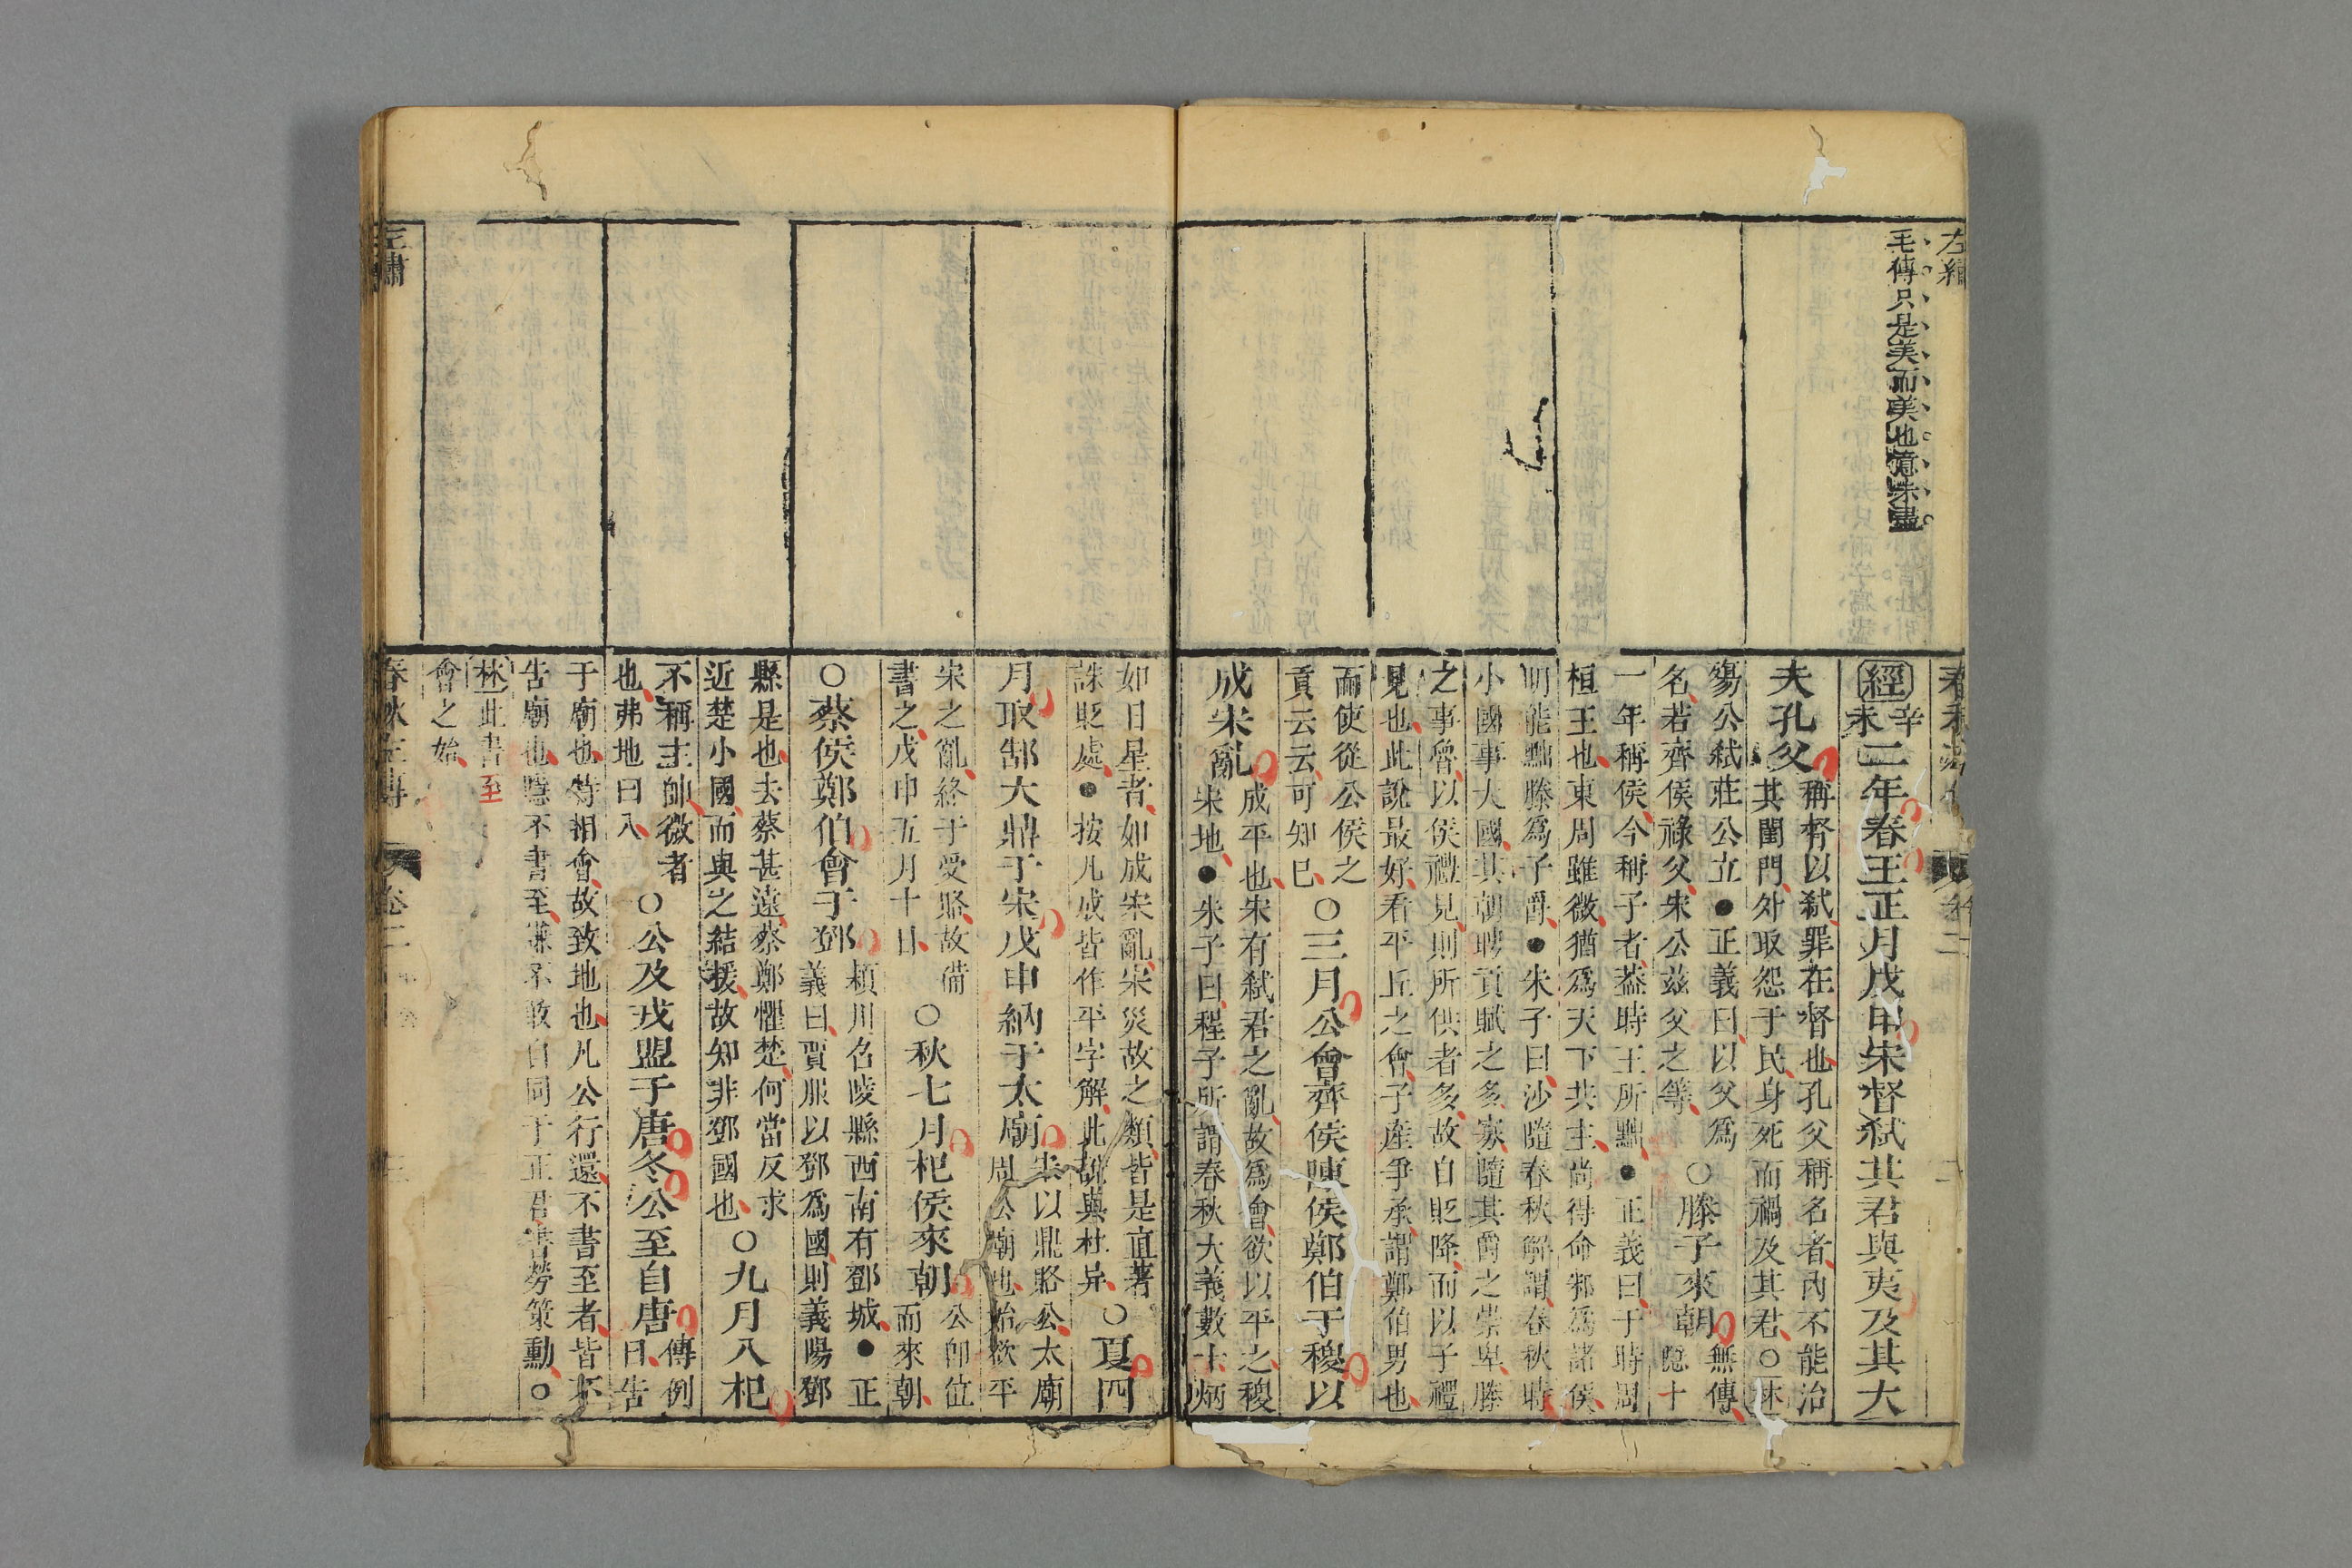 左繡
毛傳只是美而美也意未盡
經辛未二年春王正月戊申宋督弑其君與夷及其大
夫孔父稱督以弑罪在督也孔父稱名者內不能治
其閨門外取怨于民身死而禍及其君○林
殤公弑莊公立●正義曰以父爲
名若齊侯祿父宋公茲父之等
○滕子來朝無傳
隱十
一年稱侯今稱子者蓋時王所黜●正義曰于時周
桓王也東周雖微猶爲天下共主尚得命邾爲諸侯
明能黜滕爲子爵●朱子曰沙隨春秋解謂春秋時
小國事大國其朝聘貢賦之多寡隨其爵之崇卑滕
之事魯以侯禮見則所供者多故自貶降而以子禮
見也此說最好看平丘之會子產爭承謂鄭伯男也
而使從公侯之
貢云云可知已
○三月公會齊侯陳侯鄭伯于稷以
成宋亂成平也宋有弑君之亂故爲會欲以平之稷
宋地●朱子曰程子所謂春秋大義數十炳
如日星者如成宋亂宋災故之類皆是直著
誅貶處●按凡成皆作平字解此說與杜异
○夏四
月取郜大鼎于宋戊申納于太廟宋以鼎賂公太廟
周公廟也始欲平
宋之亂終于受賂故備
書之戊申五月十日
○秋七月杞侯來朝公卽位
而來朝
○蔡侯鄭伯會于鄧潁川召陵縣西南有鄧城●正
義曰賈服以鄧爲國則義陽鄧
縣是也去蔡甚遠蔡鄭懼楚何當反求
近楚小國而與之結援故知非鄧國也
○九月入杞
不稱主帥微者
也弗地曰入
○公及戎盟于唐冬公至自唐傳例
曰告
于廟也特相會故致地也凡公行還不書至者皆不
告廟也隱不書至謙不敢自同于正君書勞策勳○
林此書至
會之始
春秋左傳 卷二